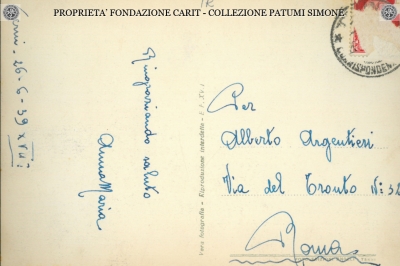 PROPRIETA' FONDAZIONE CARIT - COLLEZIONE PATUMI SIMONE
Terni - 26-6-39 XVII
Ringraziando saluto
Anna Maria
Vera fotografia - Riproduzione interdetta
CORRISPONDEN
Per
Alberto Argentieri
Via del Tronto N: 32
Roma